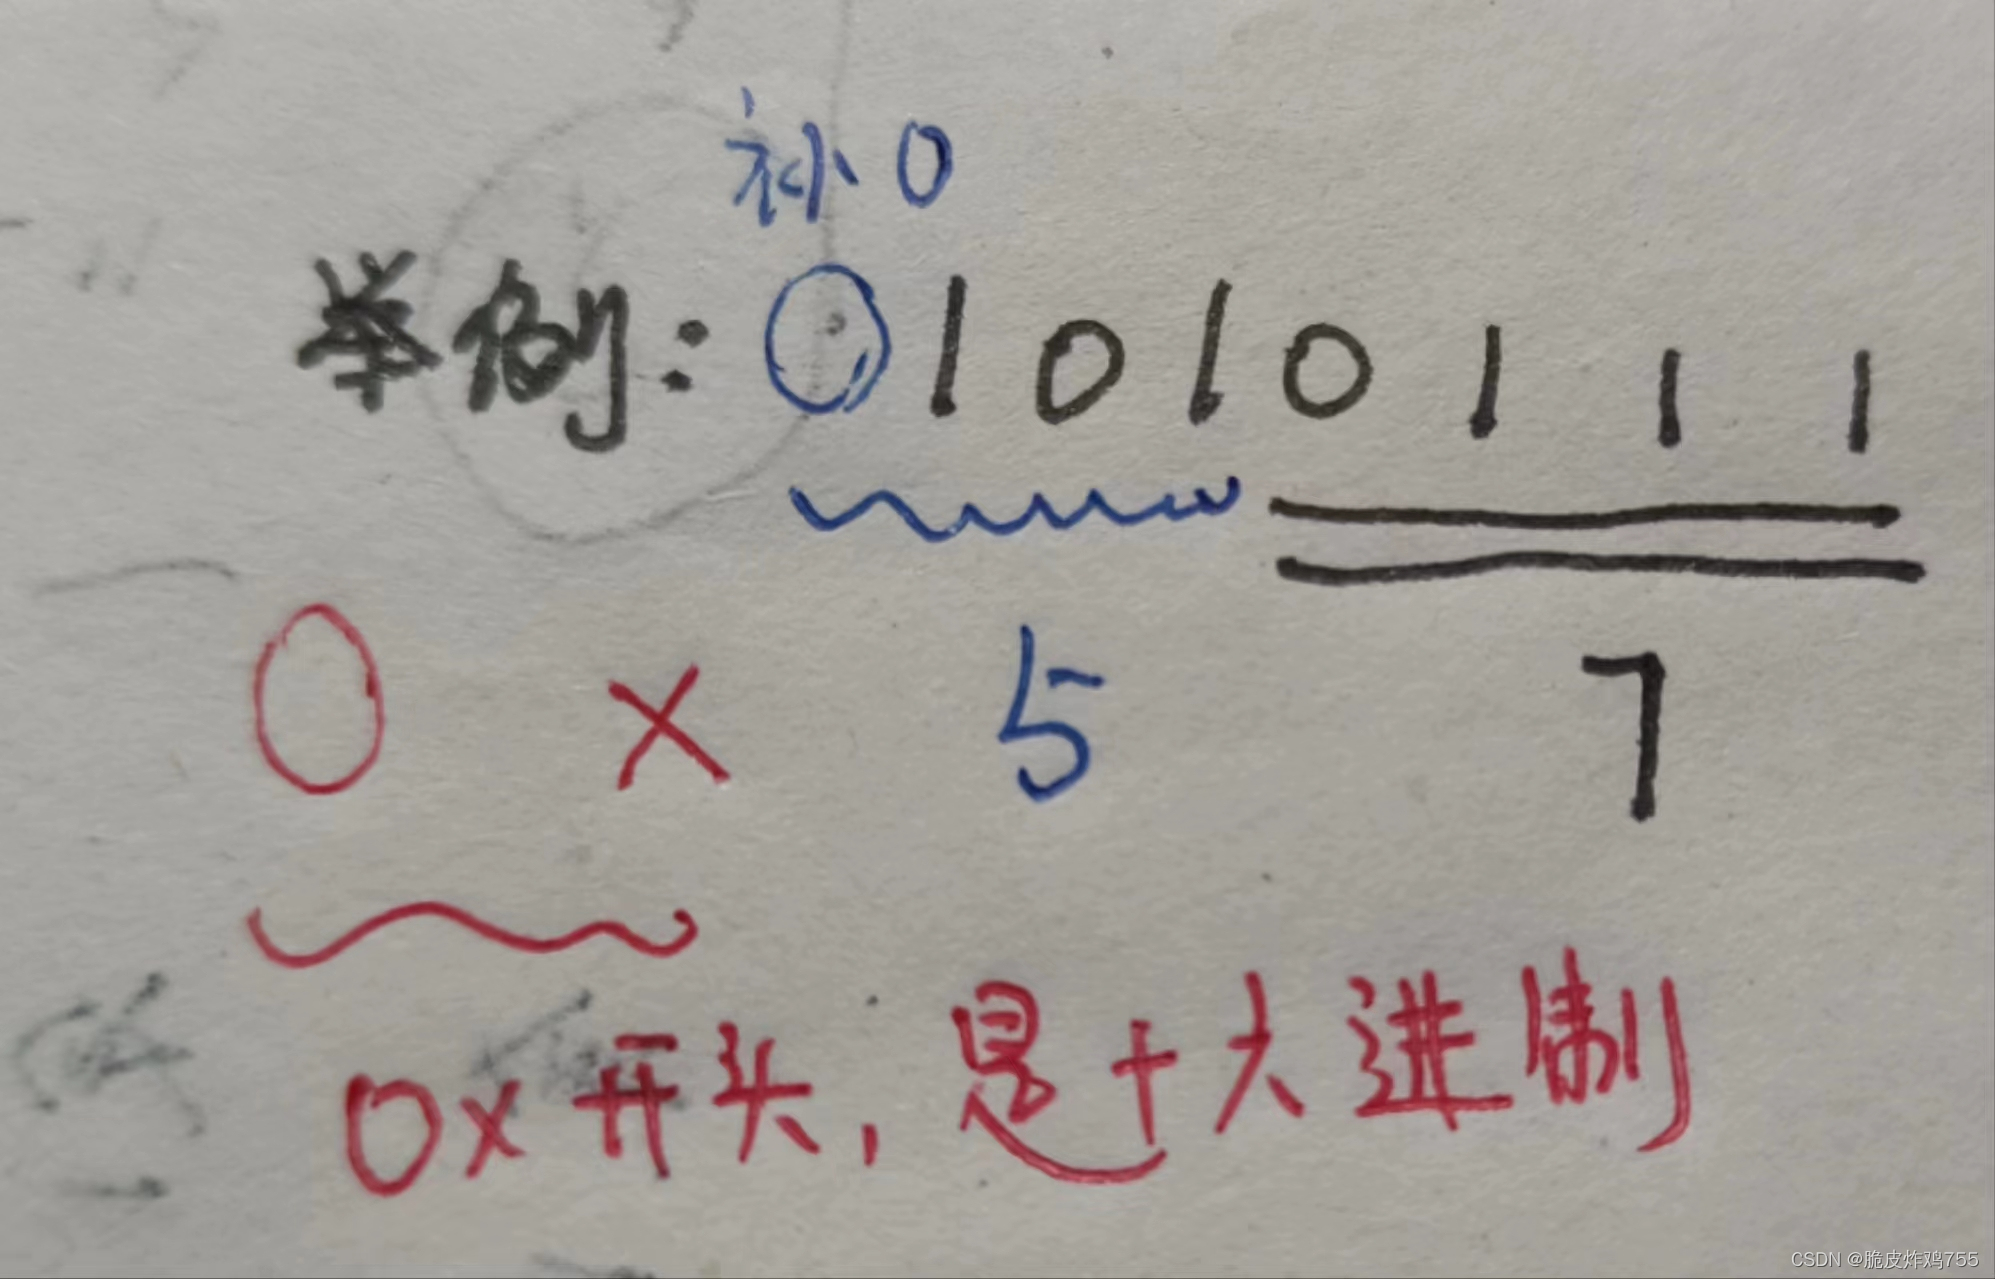 补0
举例:01010111
0x57
0x开头,是十六进制
CSDN @脆皮炸鸡755